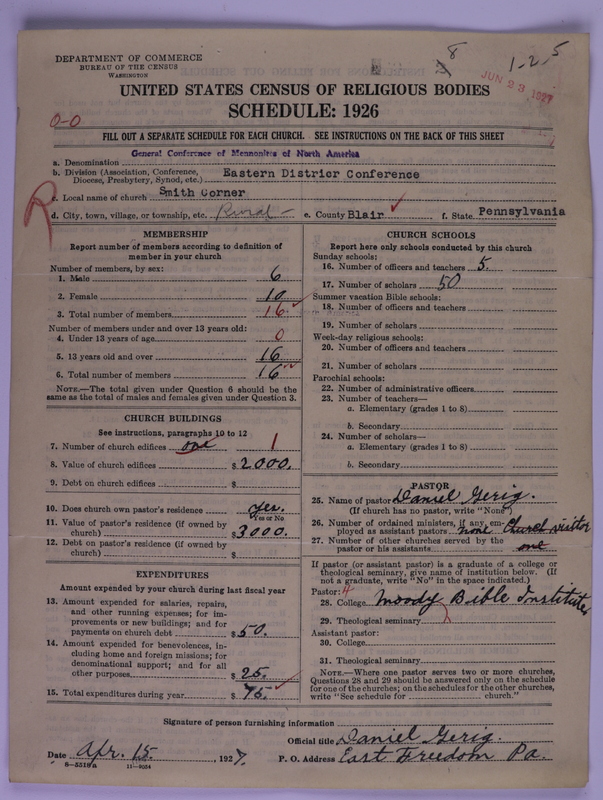 8
1-2-5
DEPARTMENT OF COMMERCE
BUREAU OF THE CENSUS
WASHINGTON
JUN 23 1927
UNITED STATES CENSUS OF RELIGIOUS BODIES
SCHEDULE: 1926
0-0
FILL OUT A SEPARATE SCHEDULE FOR EACH CHURCH. SEE INSTRUCTIONS ON THE BACK OF THIS SHEET
a. Denomination General Conference of Mennonites of North America
b. Division (Association, Conference, Diocese, Presbytery, Synod, etc.) Eastern District Conference
R
c. Local name of church Smith Corner
d. City, town, village, or township, etc. Rural — e. County Blair f. State Pennsylvania
MEMBERSHIP
Report number of members according to definition of
member in your church
Number of members, by sex:
1. Male 6
2. Female 10
3. Total number of members 16
Number of members under and over 13 years old:
4. Under 13 years of age 0
5. 13 years old and over 16
6. Total number of members 16
NOTE.—The total given under Question 6 should be the
same as the total of males and females given under Question 3.
CHURCH BUILDINGS
See instructions, paragraphs 10 to 12
7. Number of church edifices one 1
8. Value of church edifices $2000.
9. Debt on church edifices $
10. Does church own pastor's residence yes.
Yes or No
11. Value of pastor's residence (if owned by
church) $3000.
12. Debt on pastor's residence (if owned by
church) $
EXPENDITURES
Amount expended by your church during last fiscal year
13. Amount expended for salaries, repairs,
and other running expenses; for im-
provements or new buildings; and for
payments on church debt $50.
14. Amount expended for benevolences, in-
cluding home and foreign missions; for
denominational support; and for all
other purposes $25.
15. Total expenditures during year $75.
CHURCH SCHOOLS
Report here only schools conducted by this church
Sunday schools:
16. Number of officers and teachers 5.
17. Number of scholars 50
Summer vacation Bible schools:
18. Number of officers and teachers
19. Number of scholars
Week-day religious schools:
20. Number of officers and teachers
21. Number of scholars
Parochial schools:
22. Number of administrative officers
23. Number of teachers—
a. Elementary (grades 1 to 8)
b. Secondary
24. Number of scholars—
a. Elementary (grades 1 to 8)
b. Secondary
PASTOR
25. Name of pastor Daniel Gerig.
(If church has no pastor, write "None")
26. Number of ordained ministers, if any, em-
ployed as assistant pastors none Church visitor
27. Number of other churches served by the
pastor or his assistants one
If pastor (or assistant pastor) is a graduate of a college or
theological seminary, give name of institution below. (If
not a graduate, write "No" in the space indicated.)
Pastor: 4
28. College Moody Bible Institute,
29. Theological seminary
Assistant pastor:
30. College
31. Theological seminary
NOTE.—Where one pastor serves two or more churches,
Questions 28 and 29 should be answered only on the schedule
for one of the churches; on the schedules for the other churches,
write "See schedule for church."
Signature of person furnishing information
Official title Daniel Gerig.
Date Apr. 15. 1927. P. O. Address East Freedom Pa.
8-5318a 11-9034